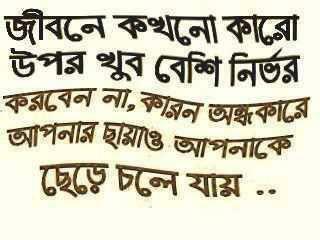 জীবনে কখনো কারো
উপর খুব বেশি নির্ভর
করবেন না, কারন অন্ধকারে
আপনার ছায়াও আপনাকে
ছেড়ে চলে যায় ..